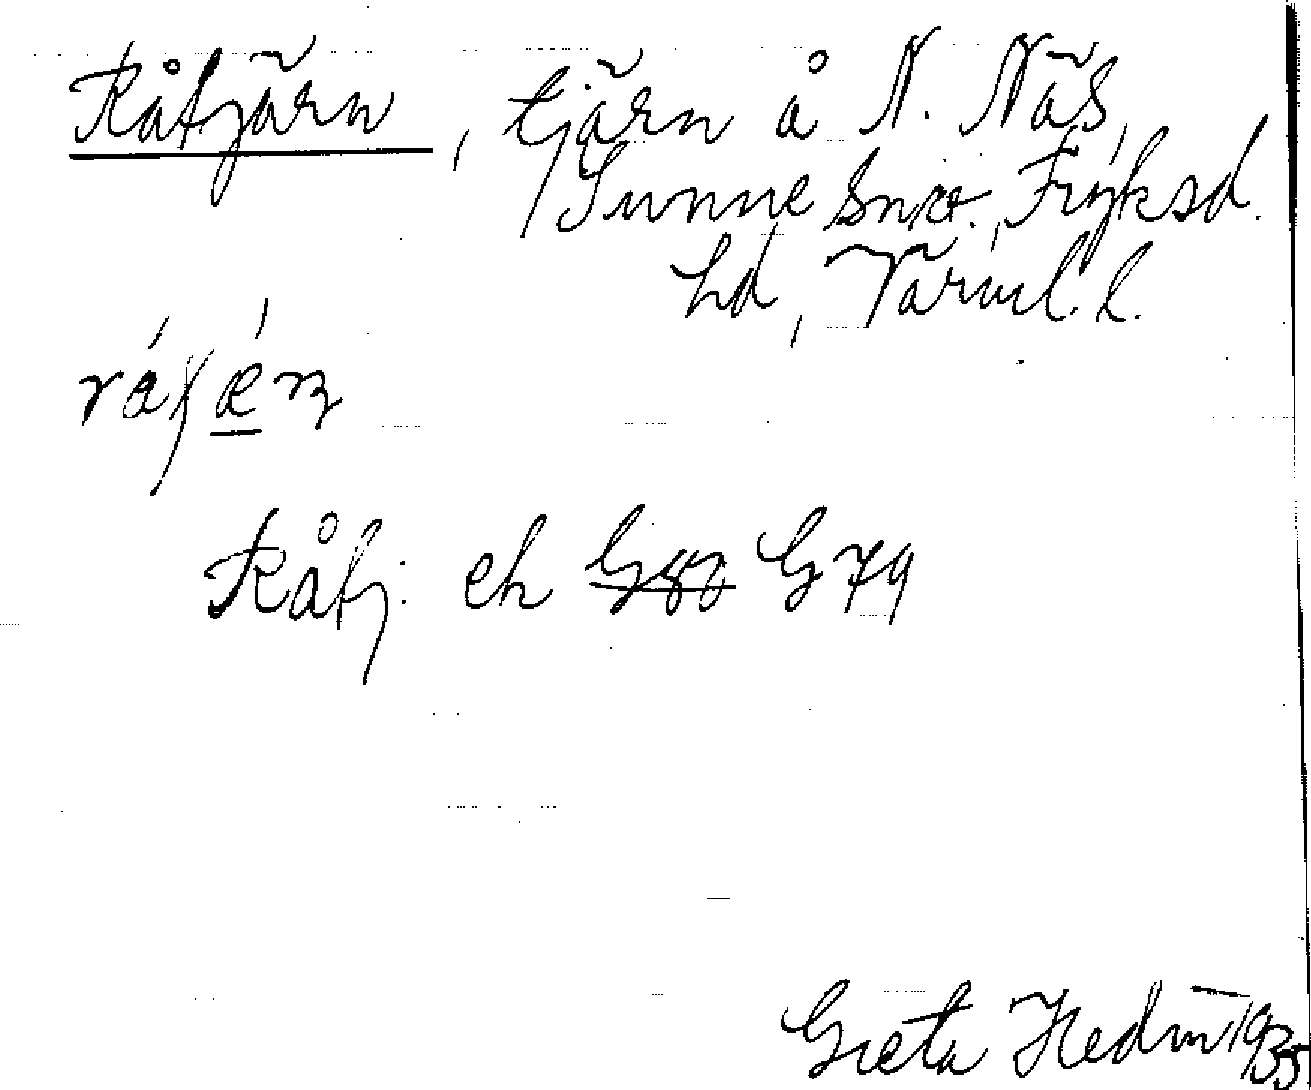 Råtjärn, tjärn å N. Näs,
Sunne snr. Fryksd.
hd, Värml. l.
Råtj: ek G80 G79
Greta Hedin 1935